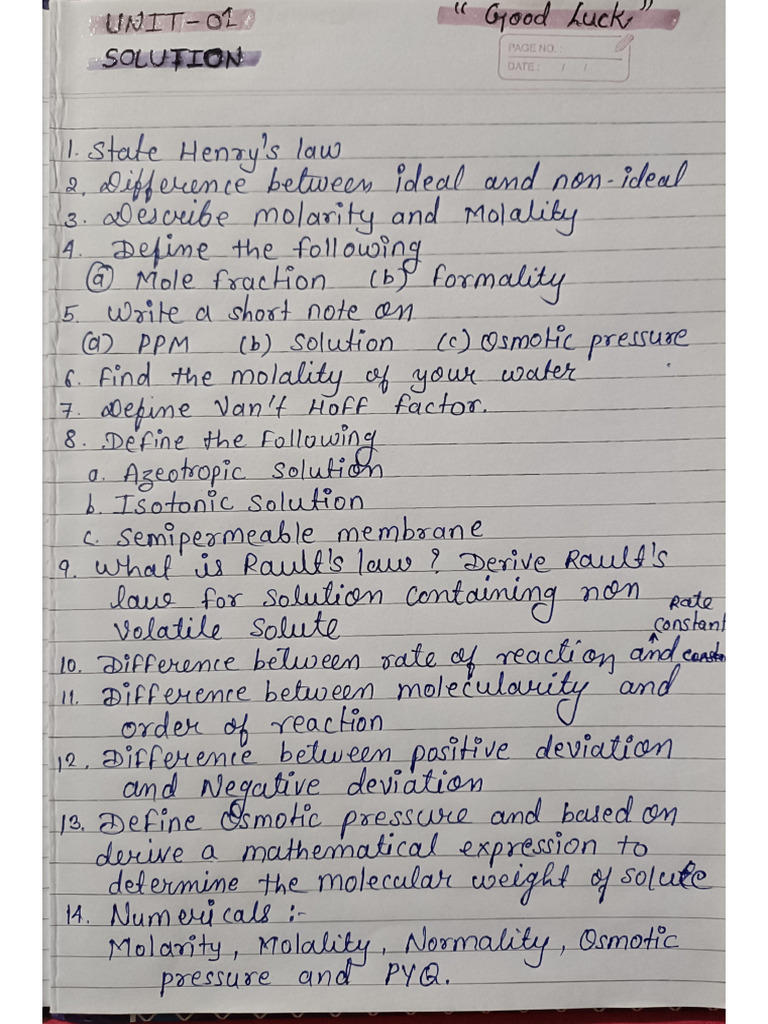 UNIT-01
"Good Luck"
PAGE NO. :
DATE : / /
SOLUTION
1. State Henry's law
2. Difference between ideal and non-ideal
3. Describe molarity and Molality
4. Define the following
(a) Mole fraction (b) formality
5. Write a short note on
(a) PPM (b) Solution (c) Osmotic pressure
6. find the molality of your water
7. Define Van't Hoff factor.
8. Define the Following
a. Azeotropic solution
b. Isotonic solution
c. Semipermeable membrane
9. What is Rault's law ? Derive Rault's
law for solution containing non
volatile solute
10. Difference between rate of reaction and Rate constant
11. Difference between molecularity and
order of reaction
12. Difference between positive deviation
and Negative deviation
13. Define Osmotic pressure and based on
derive a mathematical expression to
determine the molecular weight of solute
14. Numericals :-
Molarity, Molality, Normality, Osmotic
pressure and PYQ.